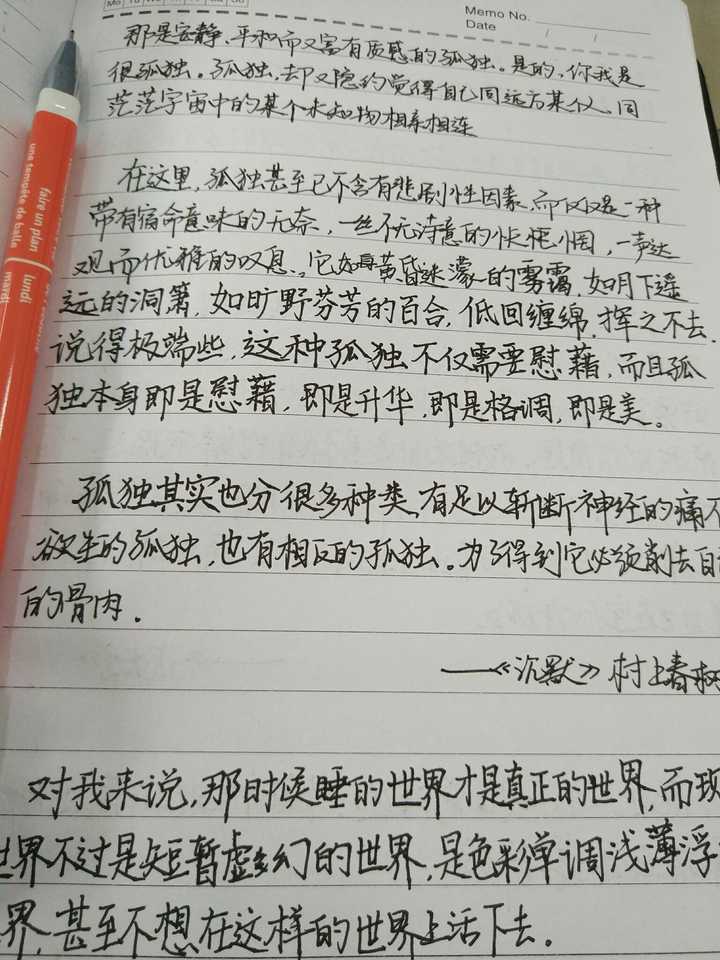 Mo Tu We Th Fr Sa Su
Memo No.
Date / /
那是安静、平和而又富有质感的孤独。是的，你我是
很孤独。孤独，却又隐约觉得自己同远方某个人、同
茫茫宇宙中的某个未知物相亲相连
在这里，孤独甚至已不含有悲剧性因素，而仅仅是一种
带有宿命意味的无奈，一丝不无诗意的怅惘，一声达
观而优雅的叹息，它如黄昏迷濛的雾霭，如月下遥
远的洞箫，如旷野芬芳的百合，低回缠绵，挥之不去。
说得极端些，这种孤独不仅需要慰藉，而且孤
独本身即是慰藉，即是升华，即是格调，即是美。
孤独其实也分很多种类，有足以斩断神经的痛不
欲生的孤独，也有相反的孤独。为了得到它必须削去自
的骨肉。
——《沉默》村上春树
对我来说，那时侯睡的世界才是真正的世界，而现
世界不过是短暂虚幻的世界，是色彩单调浅薄浮
界，甚至不想在这样的世界上活下去。
faire un plan
une tempête de balle
lundi
mardi